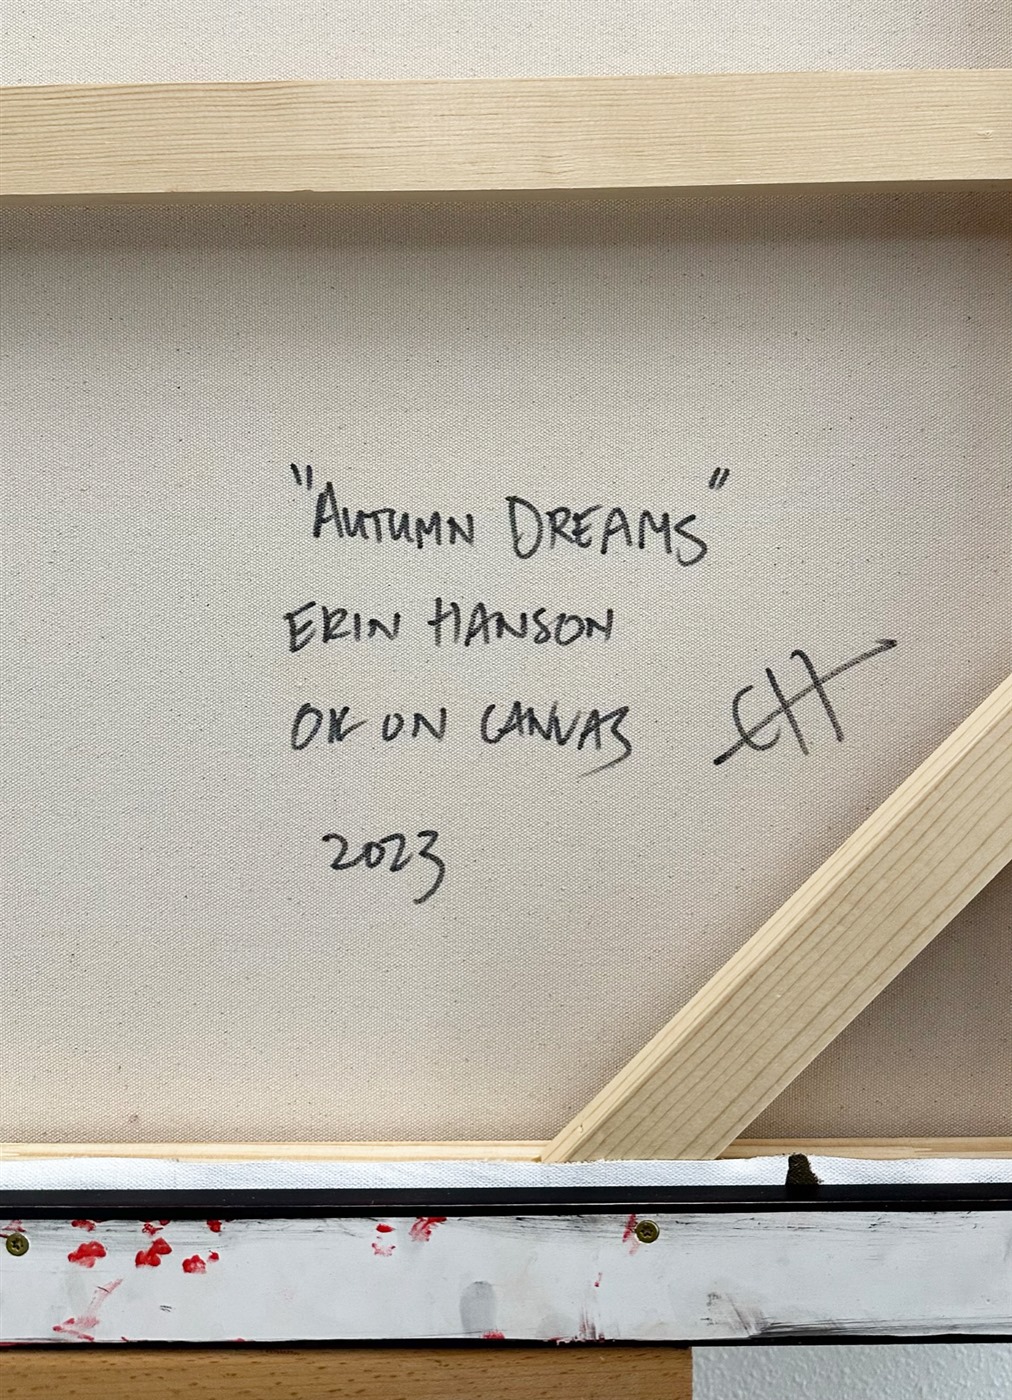 "AUTUMN DREAMS"
ERIN HANSON
OIL ON CANVAS
EH
2023